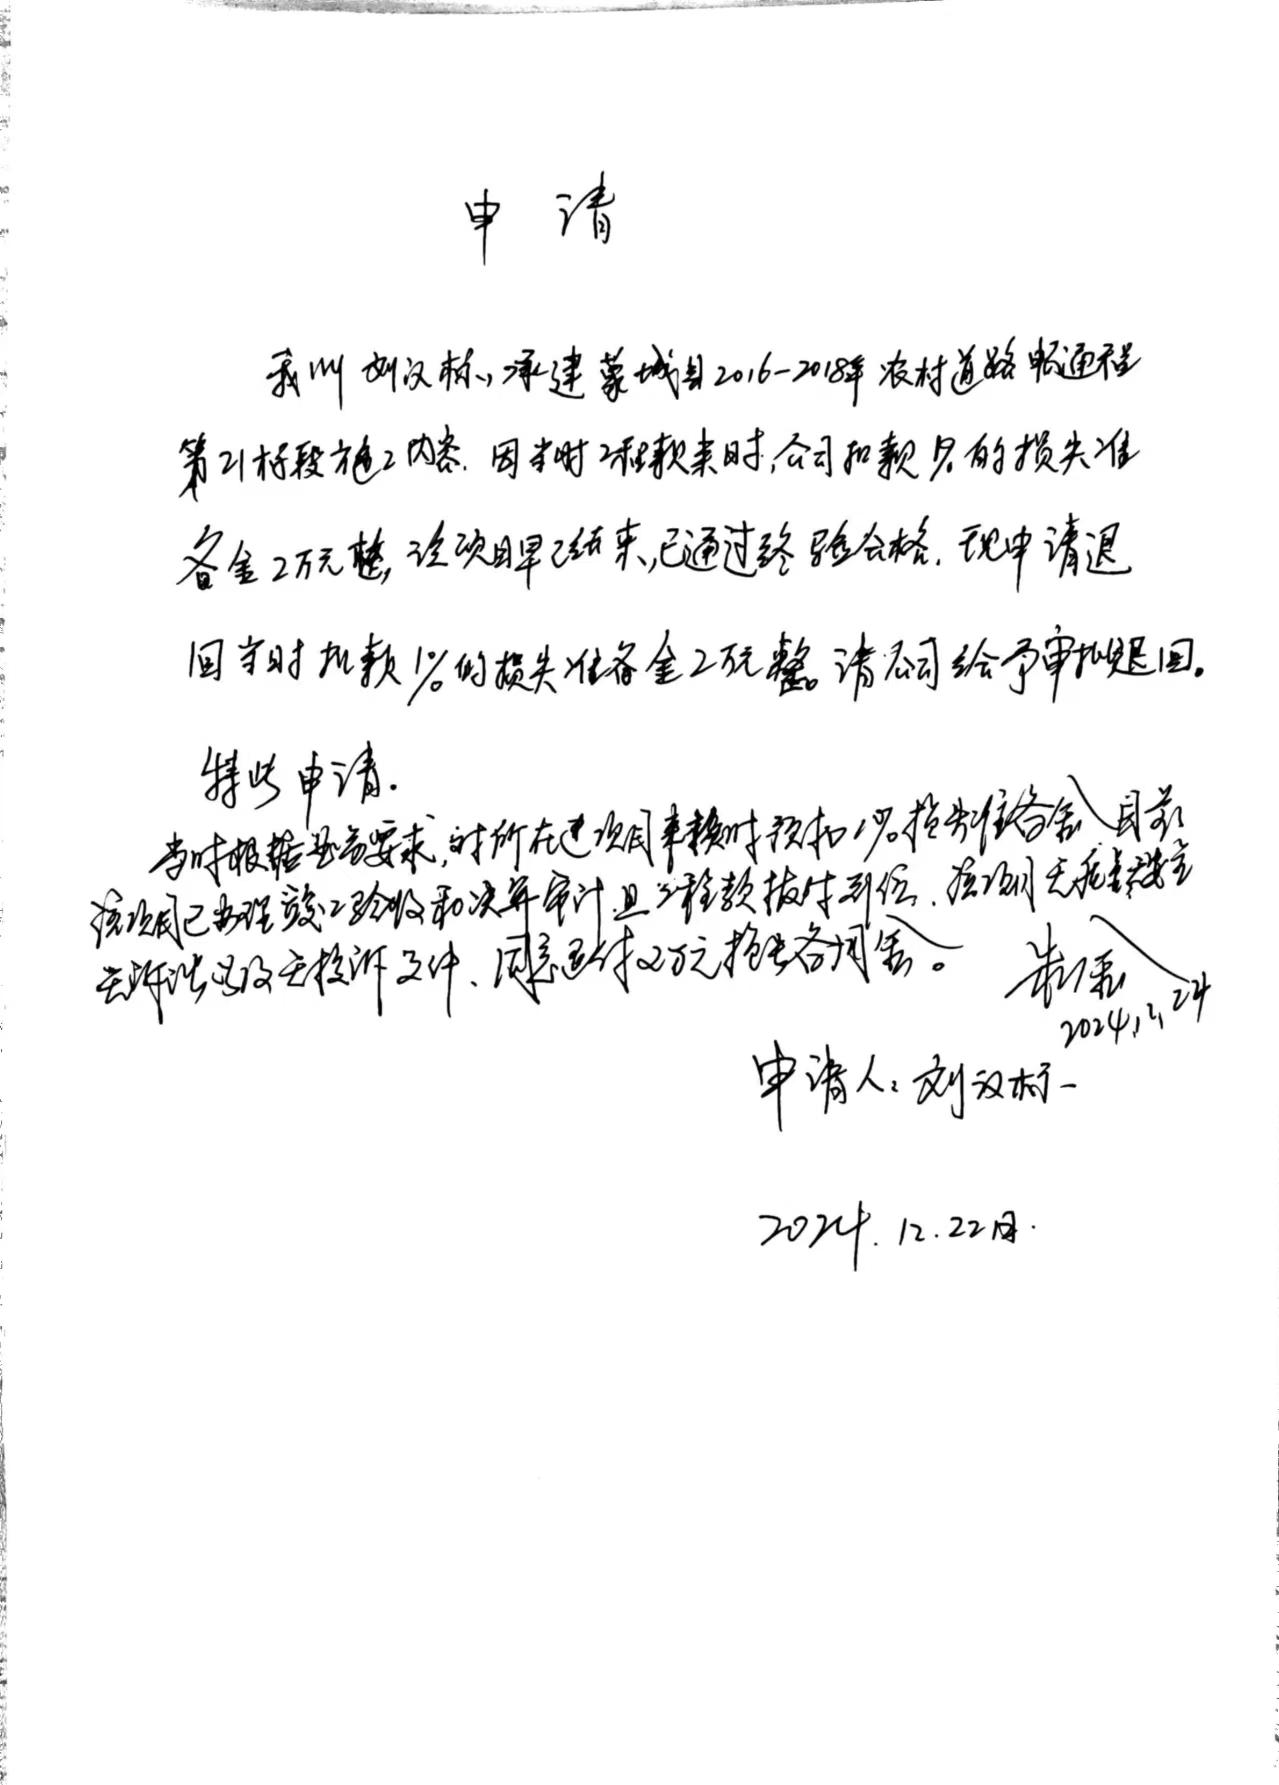 申 请
我叫刘汉标,承建蒙城县2016-2018年农村道路畅通工程
第21标段施工内容.因当时工程款来时,公司扣款1%的损失准
备金2万元整,该项目早已结束,已通过终验合格.现申请退
回当时扣款1%的损失准备金2万元整。请公司给予审批退回。
特此申请.
当时根据业务要求,对所在建项目来款时预扣1%损失准备金 目前
该项目已办理竣工验收和决算审计且工程款拨付到位.该项目无
无诉讼以及无投诉文件、同意退付2万元损失备用金。
2024.12.24
申请人:刘汉标
2024.12.22日.